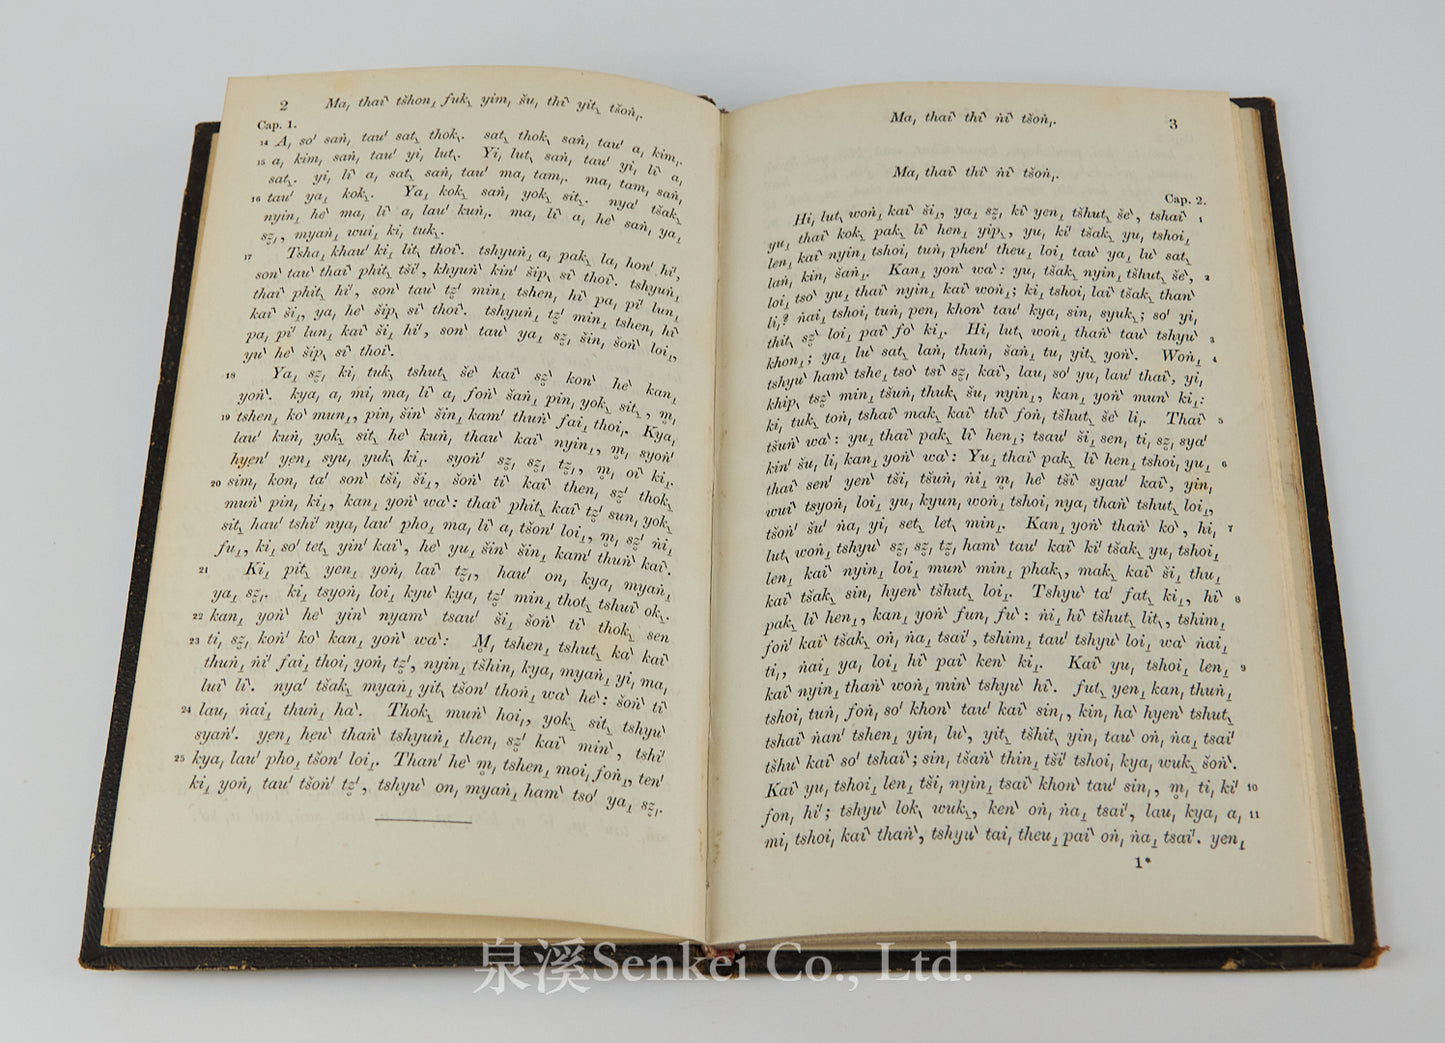 2 Ma͵ thai‵ tšhon͵ fuk͵ yim͵ šu͵ thi‵ yit͵ tšoṅ͵.
Cap. 1.
14 A͵ so′ saṅ͵ tau′ sat͵ thok͵. sat͵ thok͵ saṅ͵ tau′ a͵ kim͵.
15 a͵ kim͵ saṅ͵ tau′ yi͵ lut͵. Yi͵ lut͵ saṅ͵ tau′ yi͵ li‵ a͵
sat͵. yi͵ li‵ a͵ sat͵ saṅ͵ tau′ ma͵ tam͵. ma͵ tam͵ saṅ͵
16 tau′ ya͵ kok͵. Ya͵ kok͵ saṅ͵ yok͵ sit͵. nya′ tšak͵
nyin͵ he‵ ma͵ li‵ a͵ lau′ kuṅ͵. ma͵ li‵ a͵ he‵ saṅ͵ ya͵
sz̥͵, myaṅ͵ wui͵ ki͵ tuk͵.
17 Tsha͵ khau′ ki͵ lit͵ thoi‵. tshyuṅ͵ a͵ pak͵ la͵ hon′ hi′,
son′ tau′ thai′ phit͵ tši′, khyuṅ‵ kin′ šip͵ si‵ thoi‵. tshyuṅ͵
thai′ phit͵ hi′, son′ tau′ tz̥′ min͵ tshen͵ hi‵ pa͵ pi′ lun͵
kai‵ ši͵, ya͵ he‵ šip͵ si‵ thoi‵. tshyuṅ͵ tz̥′ min͵ tshen͵ hi‵
pa͵ pi′ lun͵ kai‵ ši͵ hi′, son‵ tau′ ya͵ sz̥͵ šin͵ šoṅ‵ loi͵,
yu‵ he‵ šip͵ si‵ thoi‵.
18 Ya͵ sz̥͵ ki͵ tuk͵ tshut͵ še‵ kai‵ sz̥‵ kon‵ he‵ kan͵
yoṅ‵. kya͵ a͵ mi͵ ma͵ li‵ a͵ foṅ‵ šaṅ͵ pin͵ yok͵ sit͵, m̥͵
19 tshen͵ ko‵ mun͵, pin͵ šin‵ šin͵ kam′ thuṅ‵ fai͵ thoi͵. Kya͵
lau′ kuṅ͵ yok͵ sit͵ he‵ kuṅ͵ thau′ kai‵ nyin͵, m̥͵ syoṅ′
hyen′ yen͵ syu͵ yuk͵ ki͵. syoṅ′ sz̥͵ sz̥͵ tz̥͵, m̥͵ oi‵ ki͵.
20 sim͵ kon͵ ta′ son‵ tši͵ ši͵, šoṅ‵ ti‵ kai‵ then͵ sz̥′ thok͵
muṅ′ pin͵ ki͵, kan͵ yoṅ‵ wa‵: thai′ phit͵ kai‵ tz̥′ sun͵ yok͵
sit͵ hau′ tshi′ nya͵ lau′ pho͵ ma͵ li‵ a͵ tšon′ loi͵, m̥͵ sz̥′ ṅi͵
fu͵, ki͵ so′ tet͵ yin′ kai‵, he‵ yu͵ šin‵ šin͵ kam′ thuṅ‵ kai‵.
21 Ki͵ pit͵ yen͵ yoṅ͵ lai‵ tz̥͵, hau′ on͵ kya͵ myaṅ͵
ya͵ sz̥͵. ki͵ tsyoṅ͵ loi͵ kyu‵ kya͵ tz̥′ min͵ thot͵ tshui‵ ok͵.
22 kan͵ yoṅ‵ he‵ yin‵ nyam‵ tsau′ ši͵ šoṅ‵ ti‵ thok͵ sen
23 ti͵ sz̥͵ koṅ′ ko‵ kan͵ yoṅ‵ wa‵: M̥͵ tshen͵ tshut͵ ka‵ kai‵
thuṅ͵ ṅi′ fai͵ thoi͵ yoṅ͵ tz̥′, nyin͵ tšhin͵ kya͵ myaṅ͵ yi͵ ma͵
lui‵ li‵. nya′ tšak͵ myaṅ͵ yit͵ tšon′ thoṅ͵ wa‵ he‵: šoṅ‵ ti‵
24 lau͵ ṅai͵ thuṅ͵ ha‵. Thok͵ muṅ‵ hoi͵, yok͵ sit͵ tshyu‵
syaṅ′. yen͵ heu‵ thaṅ‵ tshyuṅ͵ then͵ sz̥′ kai‵ min‵, tshi′
25 kya͵ lau′ pho͵ tšon′ loi͵. Than′ he‵ m̥͵ tshen͵ moi͵ foṅ͵, ten′
ki͵ yoṅ͵ tau′ tšoṅ′ tz̥′, tshyu‵ on͵ myaṅ͵ ham‵ tso′ ya͵ sz̥͵.
Ma͵ thai‵ thi‵ ṅi‵ tšoṅ͵. 3
Ma͵ thai‵ thi‵ ṅi‵ tšoṅ͵.
Cap. 2.
Hi͵ lut͵ woṅ͵ kai‵ ši͵, ya͵ sz̥͵ ki‵ yen͵ tšhut͵ še‵, tshai‵ 1
yu͵ thai‵ kok͵ pak͵ li‵ hen͵ yip͵, yu͵ ki′ tšak͵ yu͵ tshoi͵
len͵ kai‵ nyin͵ tshoi͵ tuṅ͵ phen′ theu͵ loi͵ tau′ ya͵ lu‵ sat͵
laṅ͵ kin͵ šaṅ͵. Kan͵ yon‵ wa‵: yu͵ tšak͵ nyin͵ tšhut͵ še‵, 2
loi͵ tso‵ yu͵ thai‵ nyin͵ kai‵ woṅ͵; ki͵ tshoi͵ lai‵ tšak͵ than‵
li͵? ṅai͵ tshoi͵ tuṅ͵ pen͵ khon‵ tau′ kya͵ sin͵ syuk͵; so′ yi͵
thit͵ sz̥‵ loi͵ pai‵ fo‵ ki͵. Hi͵ lut͵ woṅ͵ thaṅ‵ tau′ tshyu‵ 3
khon͵; ya͵ lu‵ sat͵ laṅ͵ thuṅ͵ šaṅ͵ tu͵ yit͵ yoṅ‵. Woṅ͵ 4
tshyu‵ ham‵ tshe͵ tso‵ tsi‵ sz̥͵ kai‵, lau͵ so′ yu͵ lau′ thai‵, yi͵
khip͵ tsz̥‵ min͵ tšuṅ͵ thuk͵ šu͵ nyin͵, kan͵ yoṅ‵ mun‵ ki͵:
ki͵ tuk͵ toṅ͵ tshai‵ mak͵ kai‵ thi‵ foṅ͵ tšhut͵ še‵ li͵. Thai‵ 5
tšuṅ‵ wa‵: yu͵ thai‵ pak͵ li‵ hen͵; tsau′ ši͵ sen͵ ti͵ sz̥͵ sya′
kin′ šu͵ li͵ kan͵ yoṅ‵ wa‵: Yu͵ thai‵ pak͵ li‵ hen͵ tshoi͵ yu͵ 6
thai‵ sen′ yen‵ tši͵ tšuṅ͵ ṅi͵ m̥͵ he‵ tši‵ syau′ kai‵, yin͵
wui‵ tsyoṅ͵ loi͵ yu͵ kyun͵ woṅ͵ tshoi͵ nya͵ thaṅ‵ tshut͵ loi͵,
tšoṅ′ šu′ ṅa͵ yi͵ set͵ let͵ min͵. Kan͵ yoṅ‵ thaṅ‵ ko‵, hi͵ 7
lut͵ woṅ͵ tshyu‵ sz̥͵ sz̥͵ tz̥͵ ham‵ tau′ kai‵ ki′ tšak͵ yu͵ tshoi͵
len͵ kai‵ nyin͵ loi͵ mun‵ min͵ phak͵, mak͵ kai‵ ši͵ thu͵
kai‵ tšak͵ sin͵ hyen‵ tšhut͵ loi͵. Tshyu‵ ta′ fat͵ ki͵, hi‵ 8
pak͵ li‵ hen͵, kan͵ yoṅ‵ fun͵ fu‵: ṅi͵ hi‵ tšhut͵ lit͵, tshim͵
foṅ′ kai‵ tšak͵ oṅ͵ ṅa͵ tsai′, tshim͵ tau′ tshyu‵ loi͵ wa‵ ṅai͵
ti͵, ṅai͵ ya͵ loi͵ hi‵ pai‵ ken‵ ki͵. Kai‵ yu͵ tshoi͵ len͵ 9
kai‵ nyin͵ thaṅ‵ woṅ͵ min‵ tshyu‵ hi‵. fut͵ yen͵ kan͵ thuṅ͵
tshoi͵ tuṅ͵ foṅ͵ so′ khon‵ tau′ kai‵ sin͵, kin͵ ha‵ hyen‵ tshut͵
tshai‵ ṅan′ tshen͵ yin͵ lu‵, yit͵ tšhit͵ yin͵ tau‵ oṅ͵ ṅa͵ tsai′
tšhu‵ kai‵ so′ tshai‵; sin͵ tšaṅ‵ thin͵ tši‵ tshoi͵ kya͵ wuk͵ šoṅ‵.
Kai‵ yu͵ tshoi͵ len͵ tši͵ nyin͵ tsai‵ khon‵ tau′ sin͵, m̥͵ ti͵ ki′ 10
fon͵ hi′; tshyu‵ lok͵ wuk͵, ken‵ oṅ͵ ṅa͵ tsai′, lau͵ kya͵ a͵ 11
mi͵ tshoi͵ kai‵ thaṅ‵, tshyu‵ tai͵ theu͵ pai‵ oṅ͵ ṅa͵ tsai′. yen͵
1*
泉溪Senkei Co., Ltd.